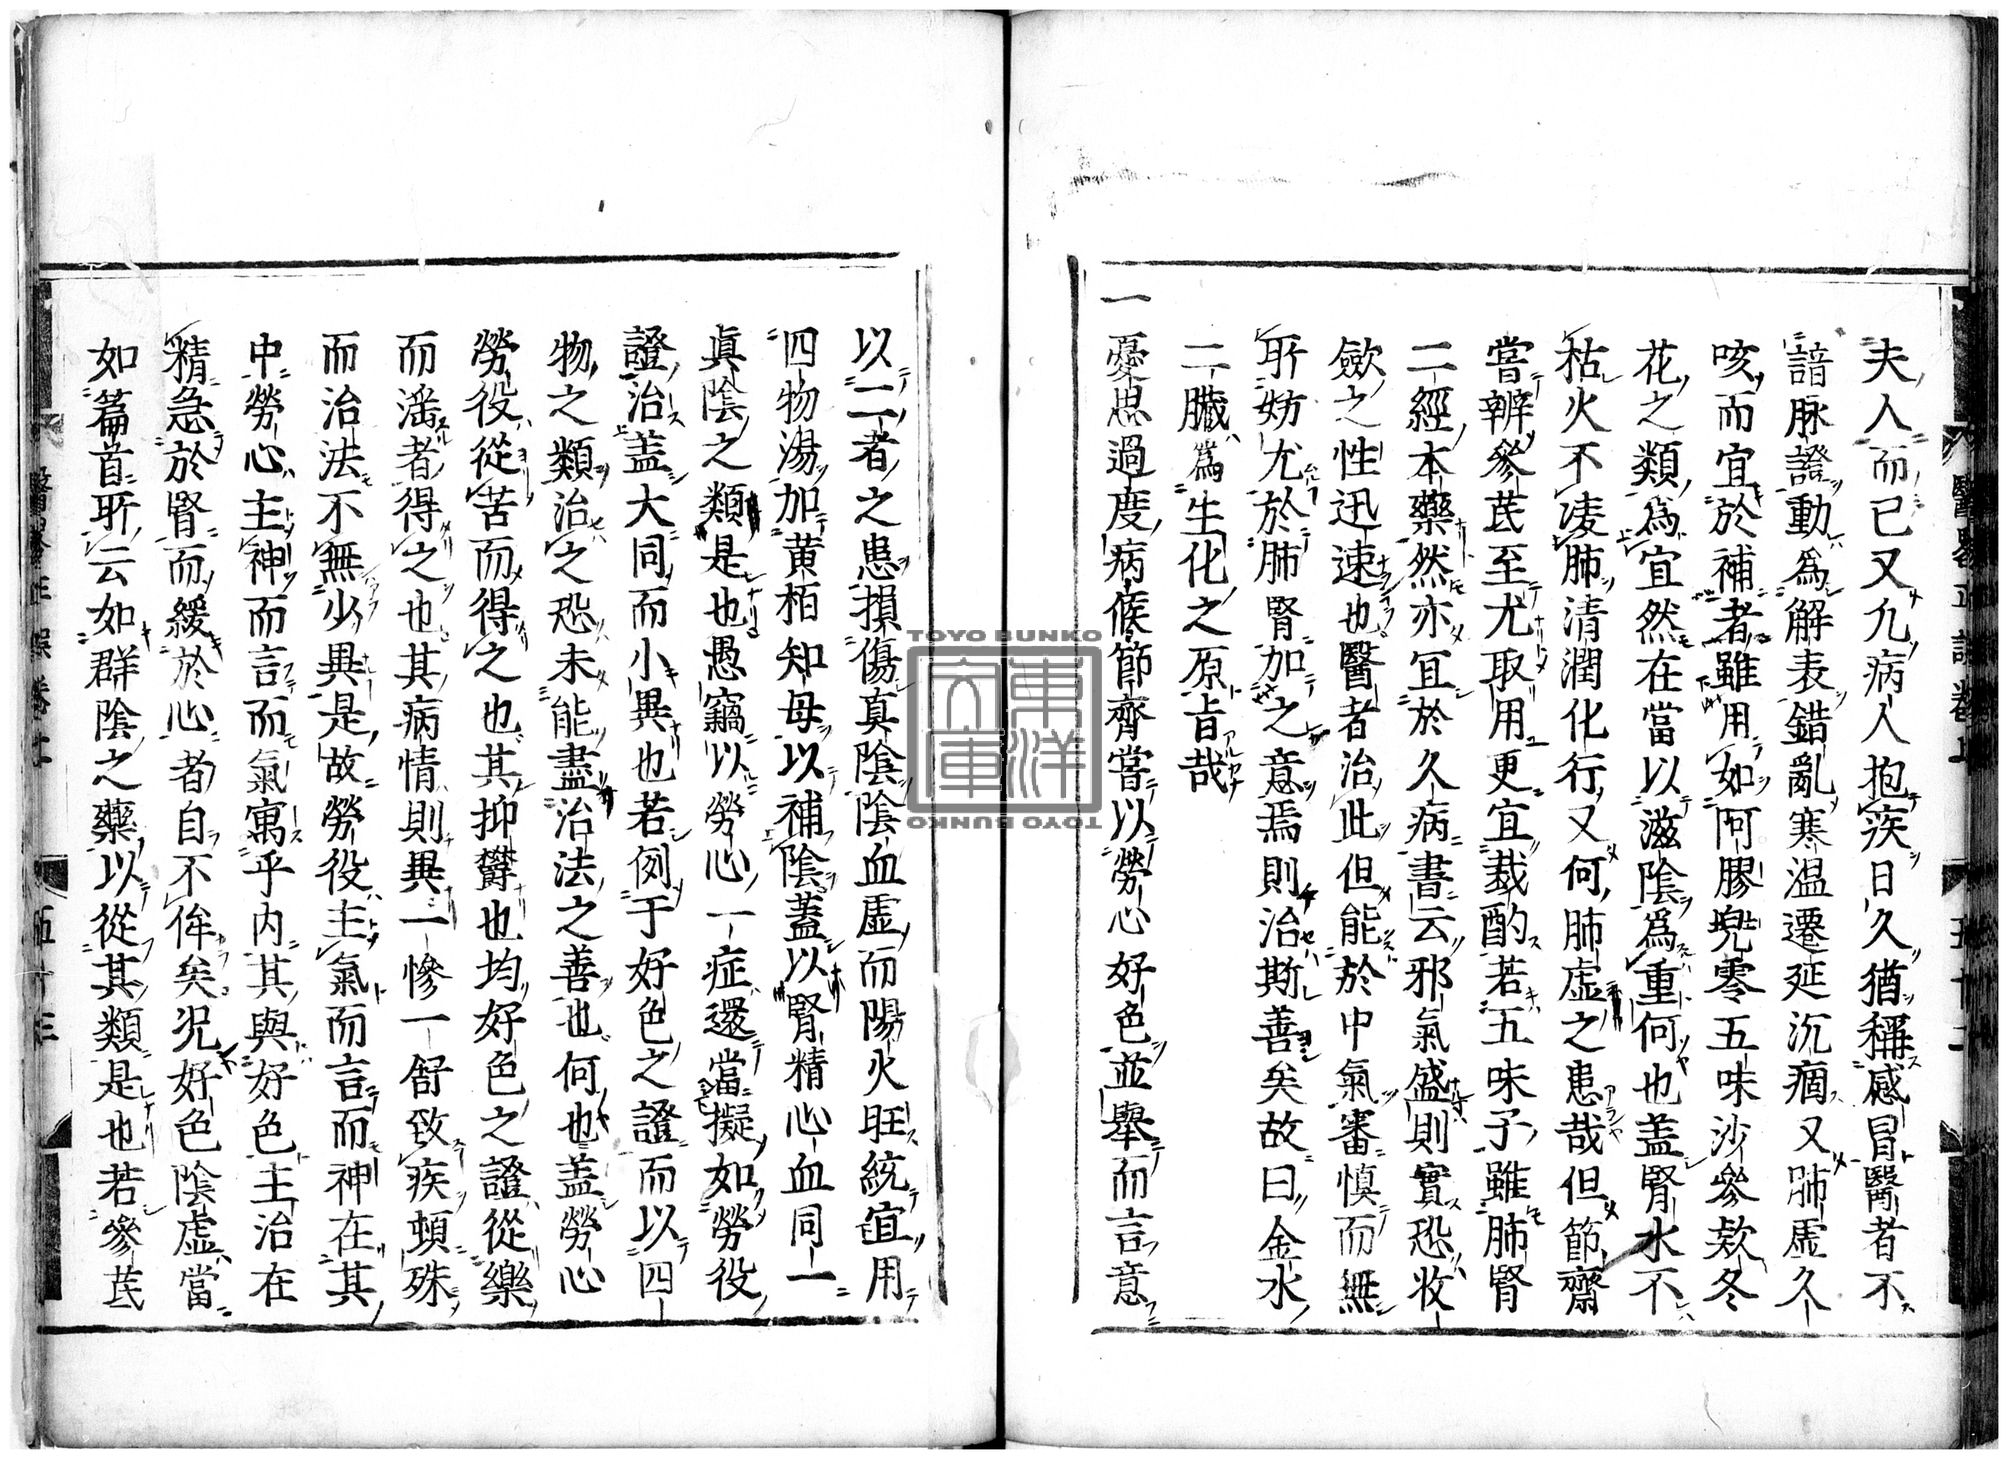 夫人而已又凢病人抱疾日久猶稱感冒醫者不
諳脉證動爲解表錯亂寒温遷延沉痼又肺虛久
咳而宜於補者雖用如阿膠兜零五味沙參款冬
花之類爲宜然在當以滋陰爲重何也盖腎水不
枯火不凌肺清潤化行又何肺虛之患哉但節齋
嘗辨參芪至尤取用更宜裁酌若五味子雖肺腎
二經本藥然亦宜於久病書云邪氣盛則實恐收
歛之性迅速也醫者治此但能於中氣審慎而無
所妨尤於肺腎加之意焉則治斯善矣故曰金水
二臟爲生化之原旨哉
一憂思過度病候節齊嘗以勞心好色並舉而言意
以二者之患損傷真陰陰血虛而陽火旺統宜用
四物湯加黄栢知母以補陰蓋以腎精心血同一
眞陰之類是也愚竊以勞心一症還當擬如勞役
證治盖大同而小異也若例于好色之證而以四
物之類治之恐未能盡治法之善也何也盖勞心
勞役從苦而得之也其抑欝也均好色之證從樂
而滛者得之也其病情則異一慘一舒致疾頓殊
而治法不無少異是故勞役主氣而言而神在其
中勞心主神而言而氣寓乎内其與好色主治在
精急於腎而緩於心者自不侔矣况好色陰虛當
如篇首所云如群陰之藥以從其類是也若參芪
醫畧正誤卷上
五十二
醫畧正誤卷上
五十三
TOYO BUNKO
東洋文庫
TOYO BUNKO